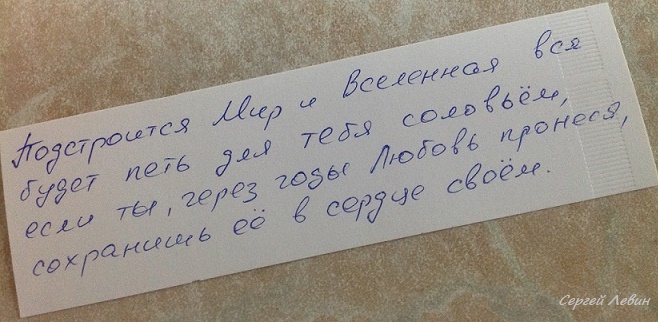 Подстроится Мир и Вселенная вся
будет петь для тебя соловьём,
если ты, через годы Любовь пронеся,
сохранишь её в сердце своём.
Сергей Левин